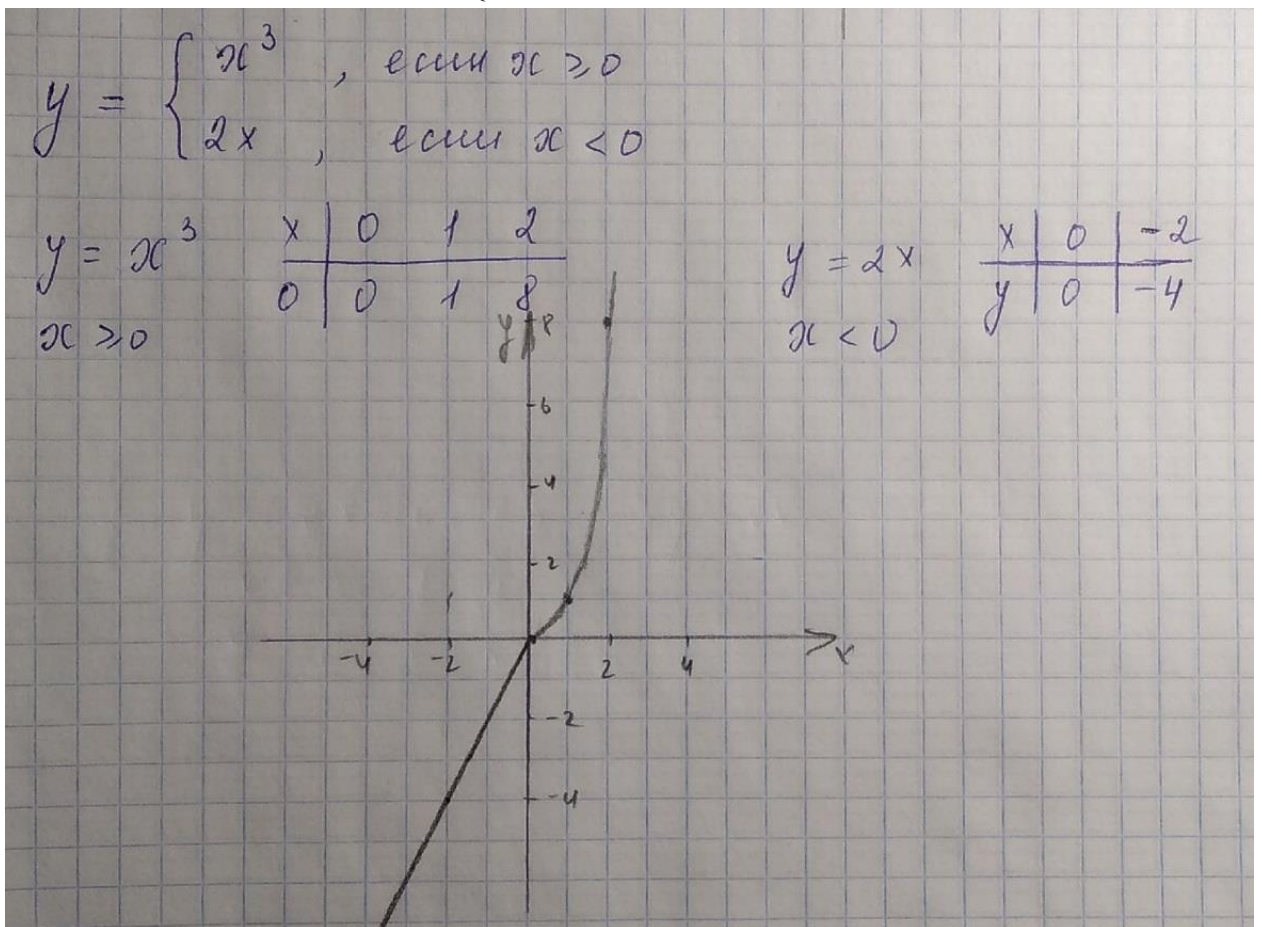 y = { x³, если x ≥ 0
2x, если x < 0
y = x³
x ≥ 0
x | 0 1 2
0 | 0 1 8
y = 2x
x < 0
x | 0 | -2
y | 0 | -4
y 8
6
4
2
-4 -2 2 4 x
-2
-4